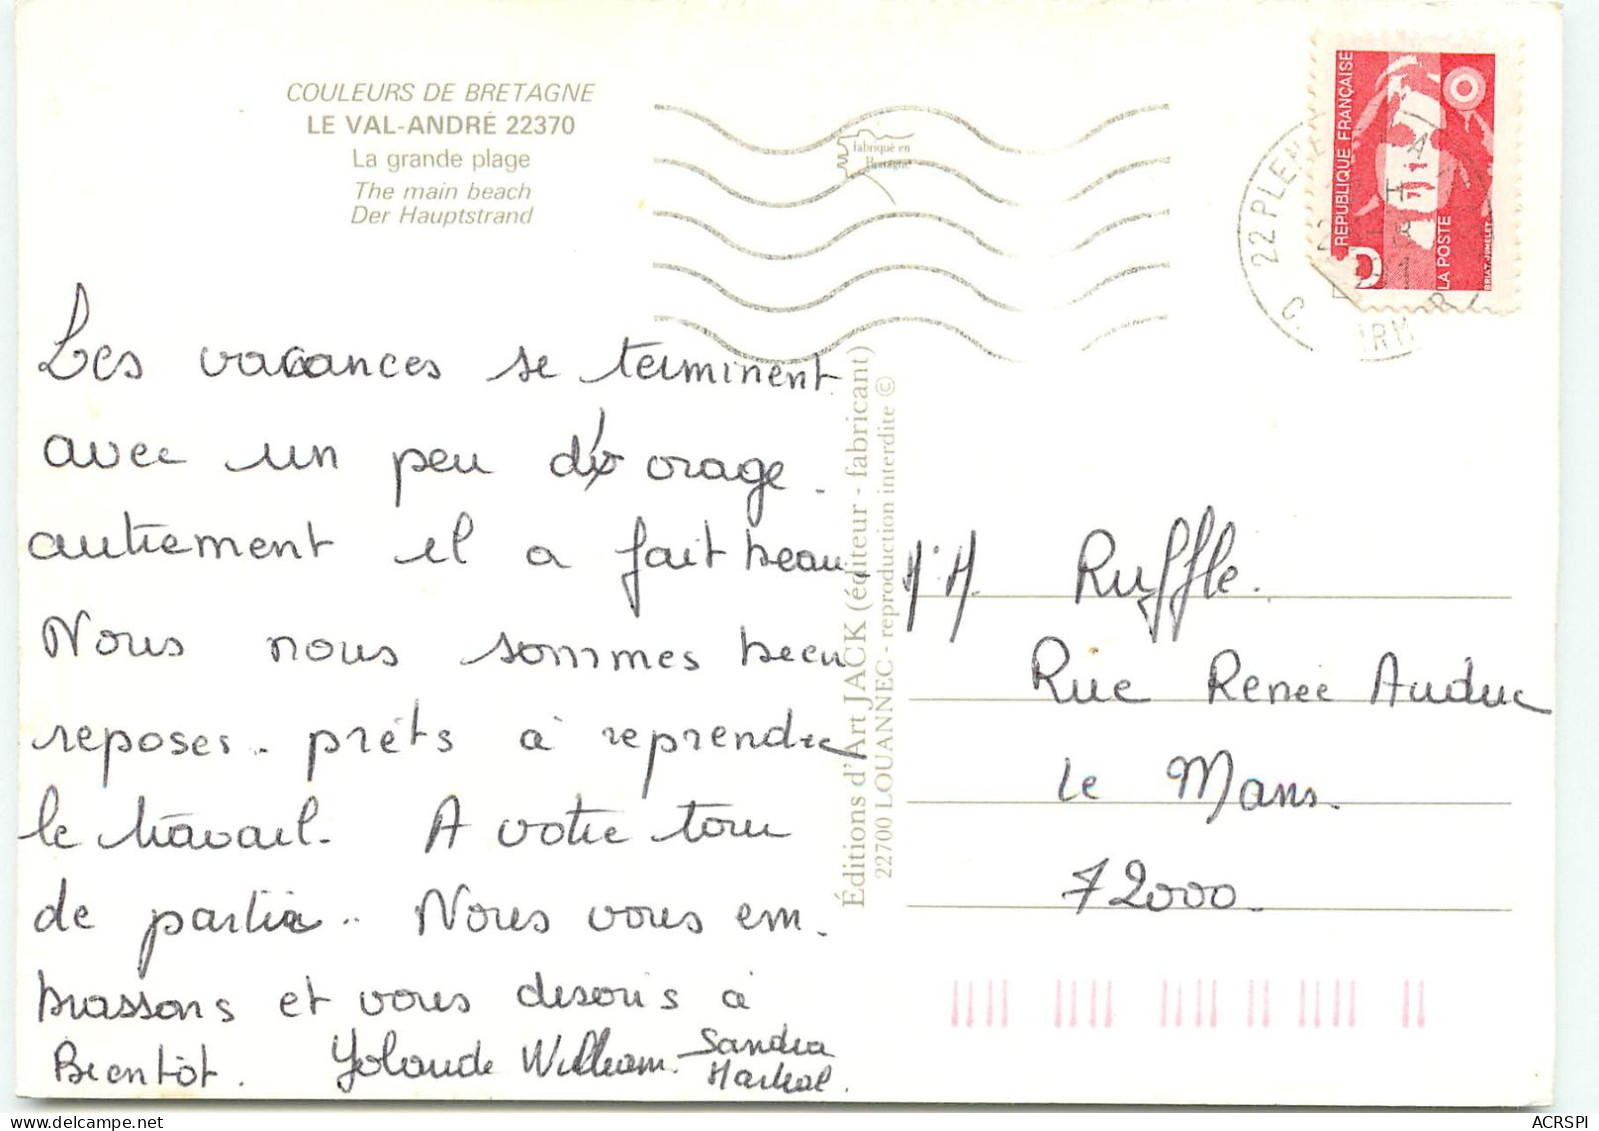 COULEURS DE BRETAGNE
LE VAL-ANDRÉ 22370
La grande plage
The main beach
Der Hauptstrand
fabriqué en
Bretagne
REPUBLIQUE FRANÇAISE
LA POSTE
D
BRIAT-JUMELET
22 PLENE
Les vacances se terminent
avec un peu d'orage.
autrement il a fait beau.
Nous nous sommes bien
reposes.. prêts à reprendre
le travail. A votre tour
de partir.. Nous vous em.
brassons et vous disons à
Bientôt. Yolande William. Sandra
Martial.
Éditions d'Art JACK (éditeur - fabricant)
22700 LOUANNEC - reproduction interdite ©
Ruffle.
Rue Renée Auduc
Le Mans.
72000.
ACRSPI